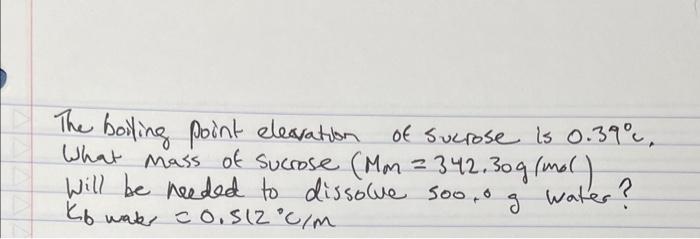 The boiling point elevation of sucrose is 0.39°c.
What mass of sucrose (Mm = 342.30g/mol)
Will be needed to dissolve 500.0 g water?
Kb water = 0.512 °C/m